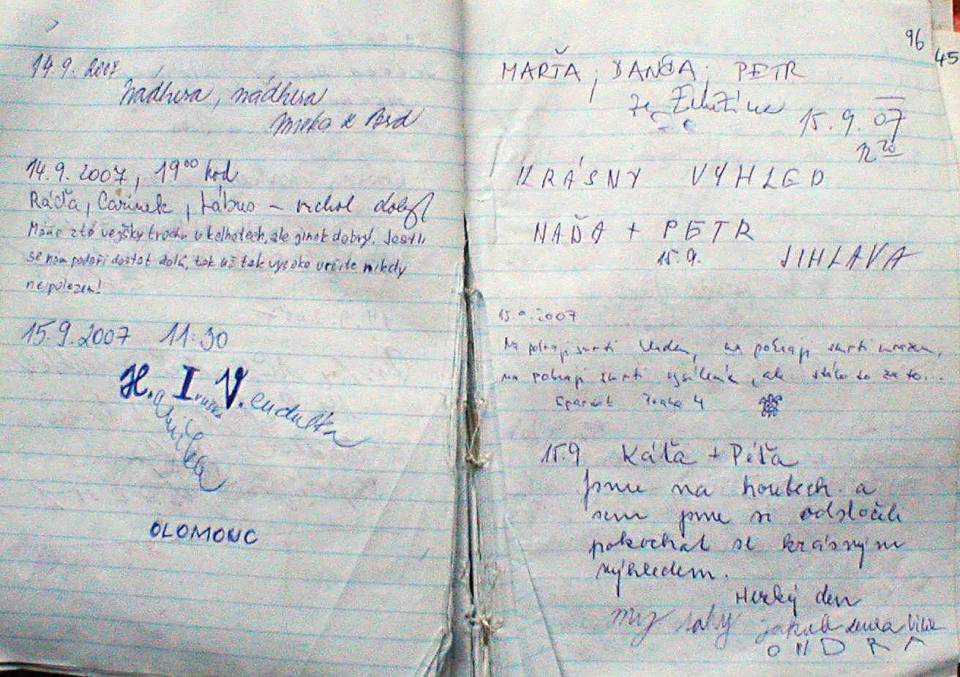 14.9. 2007
Nádhera, nádhera
Mirka z Brd
14.9. 2007, 19⁰⁰ hod
Ráďa, Čarínek, Lábus – vrchol dobyt
Máme z té vejšky trochu v kalhotech, ale jinak dobrý. Jestli
se nám podaří dostat dolů, tak už tak vysoko určitě nikdy
nepolezem!
15.9.2007 11:30
H. I. V. endulka
OLOMOUC
96
45
MARŤA, DANČA, PETR
ze
15.9.07
KRÁSNÝ VÝHLED
NAĎA + PETR
15.9. JIHLAVA
15.9.2007
Na pokraji smrti na pokraji smrti
na pokraji smrti ale stálo to za to...
Praha 4
15.9 Káťa + Péťa
Jsme na houbech a
sem jsme si odskočili
pokochat se krásným
výhledem.
Hezký den
my taky jakub
ONDRA